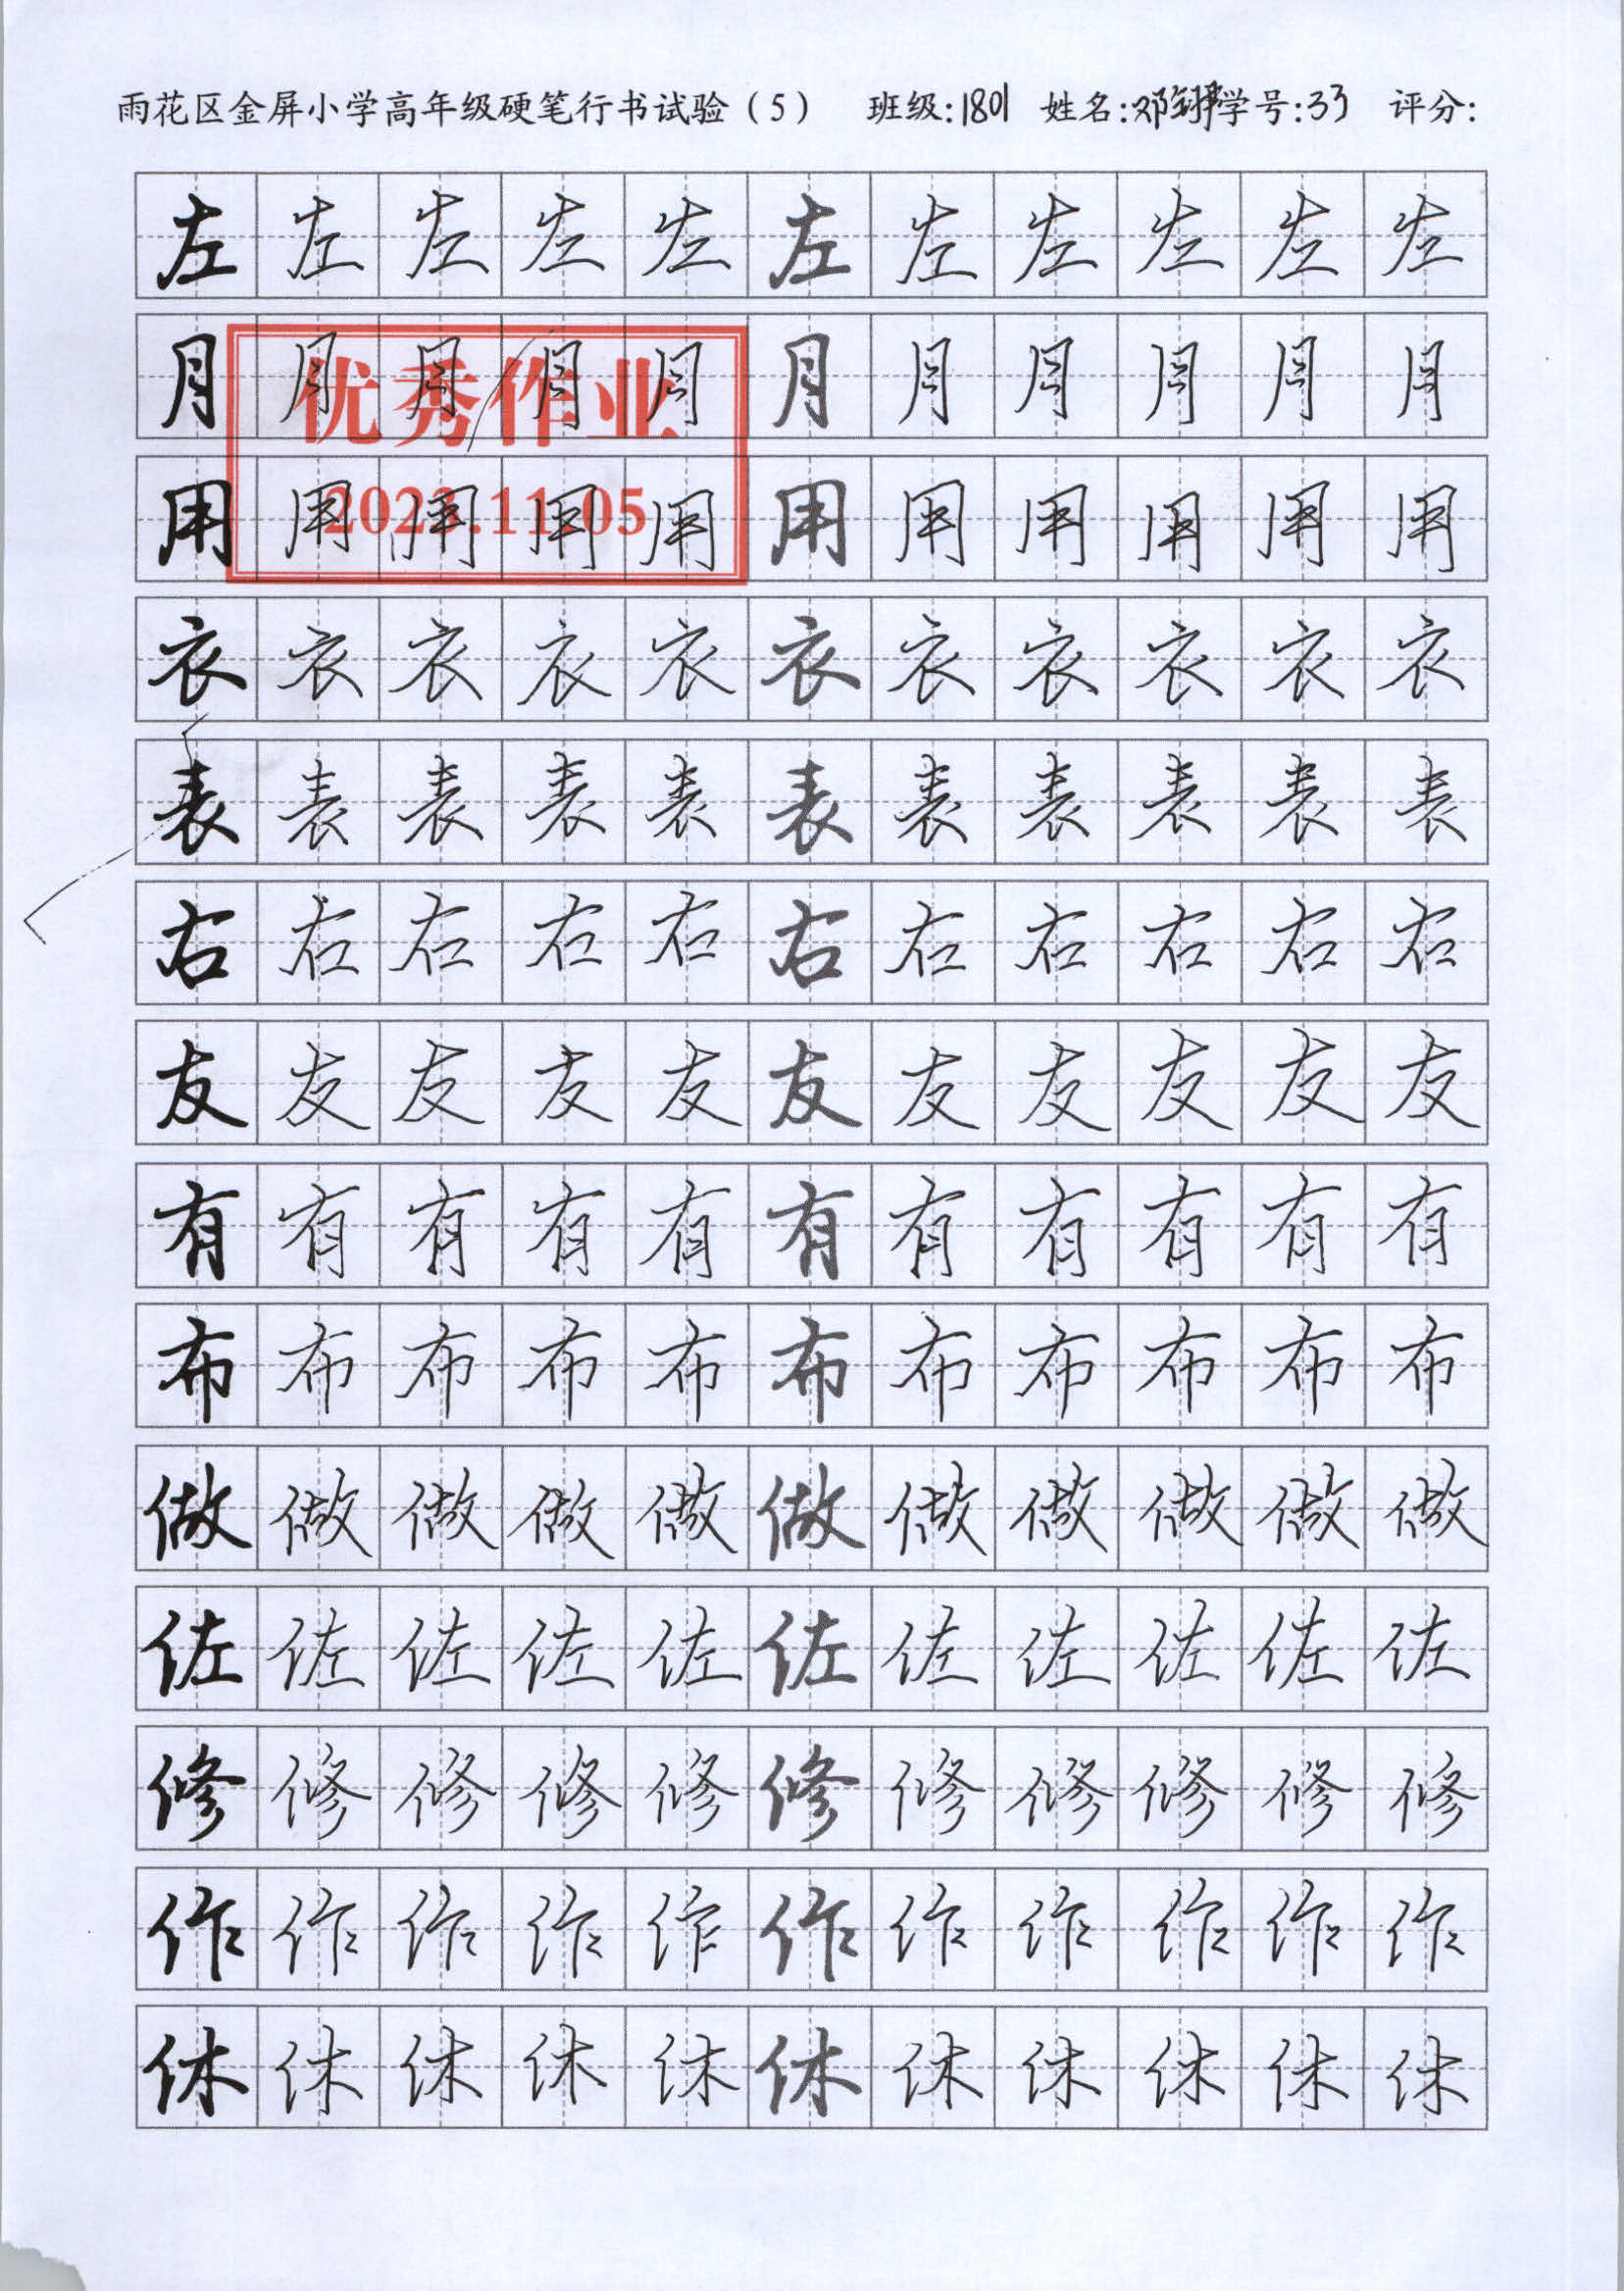 雨花区金屏小学高年级硬笔行书试验（5） 班级:1801 姓名:邓 学号:33 评分:
左左左左左左左左左左左
月月月月月月月月月月月
优秀作业
用用用用用用用用用用用
2023.11.05
衣衣衣衣衣衣衣衣衣衣衣
表表表表表表表表表表表
右右右右右右右右右右右
友友友友友友友友友友友
有有有有有有有有有有有
布布布布布布布布布布布
做做做做做做做做做做做
佐佐佐佐佐佐佐佐佐佐佐
修修修修修修修修修修修
作作作作作作作作作作作
休休休休休休休休休休休